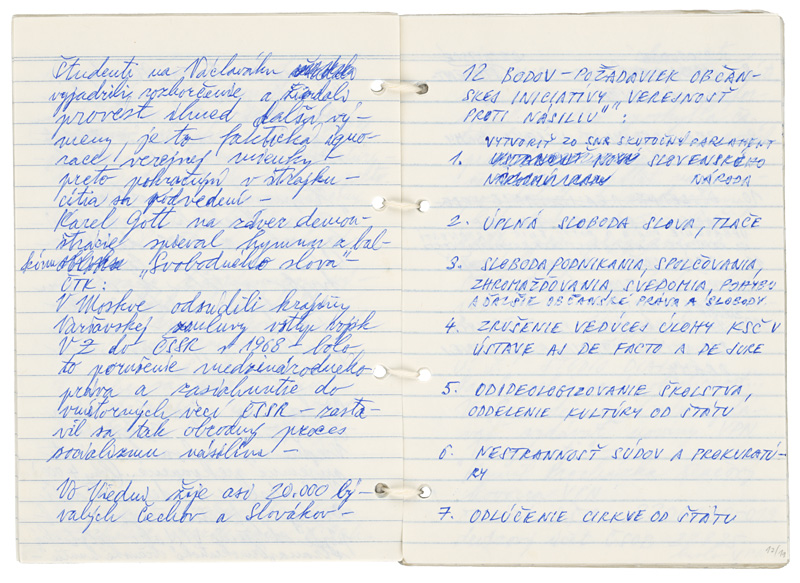 Študenti na Václaváku
vyjadrili rozhorčenie a žiadali
provest ihned další vý-
meny, je to faktická igno-
race verejnej mienky –
preto pokračujú v štrajku –
cítia sa podvedení –
Karel Gott na záver demon-
strácie spieval hymnu z bal-
kónu „Svobodného slova" –
ČTK:
V Moskve odsúdili krajiny
Varšavskej zmluvy vstup vojsk
VZ do ČSSR v 1968 – bolo
to porušenie medzinárodneho
práva a zasiahnutie do
vnútorných vecí ČSSR – zasta-
vil sa tak obrodny proces
socializmu násilím –
Vo Viedni žije asi 20.000 bý-
valých Čechov a Slovákov –
12 BODOV – POŽADAVIEK OBČAN-
SKEJ INICIATIVY „VEREJNOSŤ
PROTI NÁSILIU" :
VYTVORIŤ ZO SNR SKUTOČNÝ PARLAMENT
1. SLOVENSKÉHO
NÁRODA
2. ÚPLNÁ SLOBODA SLOVA, TLAČE
3. SLOBODA PODNIKANIA, SPOLČOVANIA,
ZHROMAŽĎOVANIA, SVEDOMIA, POHYBU
A ĎALŠIE OBČANSKÉ PRÁVA A SLOBODY
4. ZRUŠENIE VEDÚCEJ ÚLOHY KSČ V
ÚSTAVE AJ DE FACTO A DE JURE
5. ODIDEOLOGIZOVANIE ŠKOLSTVA,
ODDELENIE KULTÚRY OD ŠTÁTU
6. NESTRANNOSŤ SÚDOV A PROKURATÚ-
RY
7. ODLÚČENIE CIRKVE OD ŠTÁTU